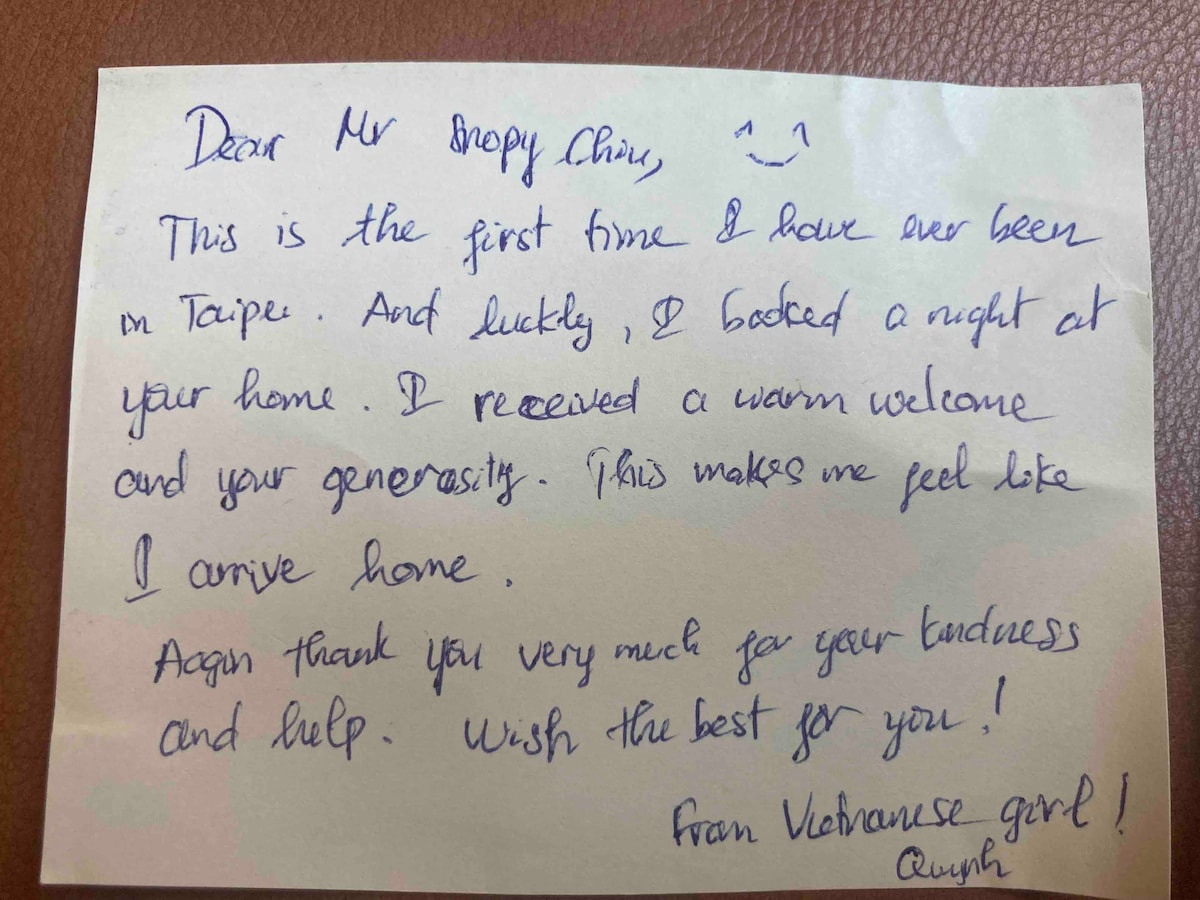 Dear Mr Snopy Chiu,
This is the first time I have ever been
in Taipei. And luckly, I booked a night at
your home. I received a warm welcome
and your generosity. This makes me feel like
I arrive home.
Aagin thank you very much for your kindness
and help. Wish the best for you!
From Vietnamese girl!
Quynh